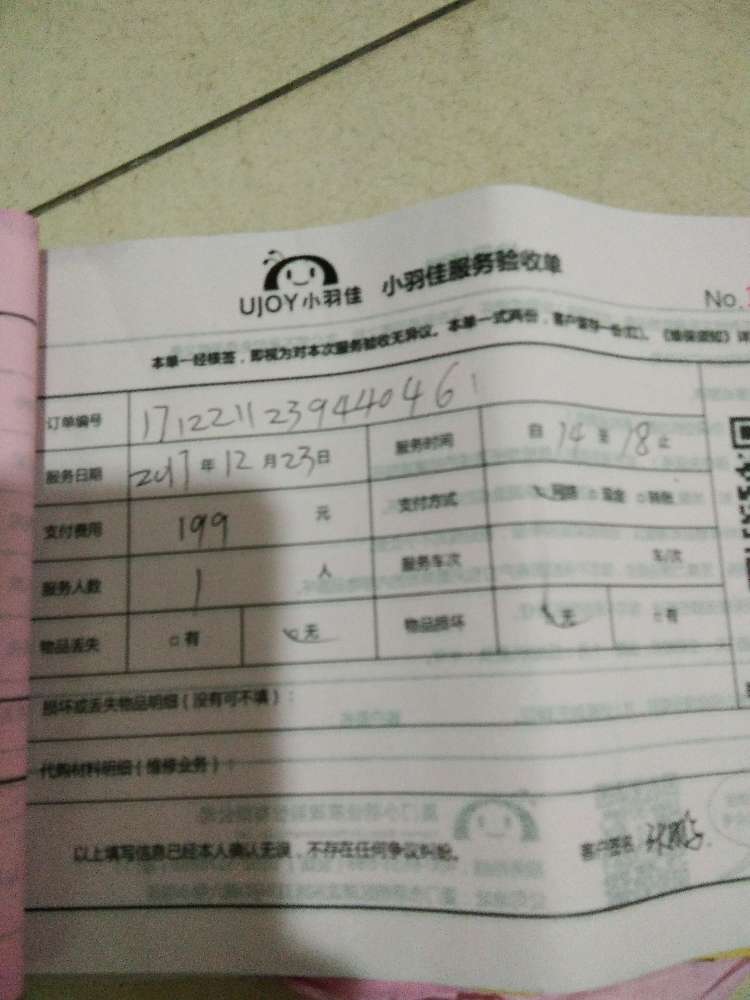 UJOY小羽佳 小羽佳服务验收单
No.
本单一经核签，即视为对本次服务验收无异议。本单一式两份，客户留存一份(红)。《维保须知》详
订单编号 171221123944046 1
服务日期 2017年12月23日 服务时间 自14至18止
支付费用 199 元 支付方式 网络 □现金 □转账
服务人数 1 人 服务车次 车/次
物品丢失 □有 无 物品损坏 无 □有
损坏或丢失物品明细（没有可不填）：
代购材料明细（维修业务）：
以上填写信息已经本人确认无误，不存在任何争议纠纷。 客户签名：